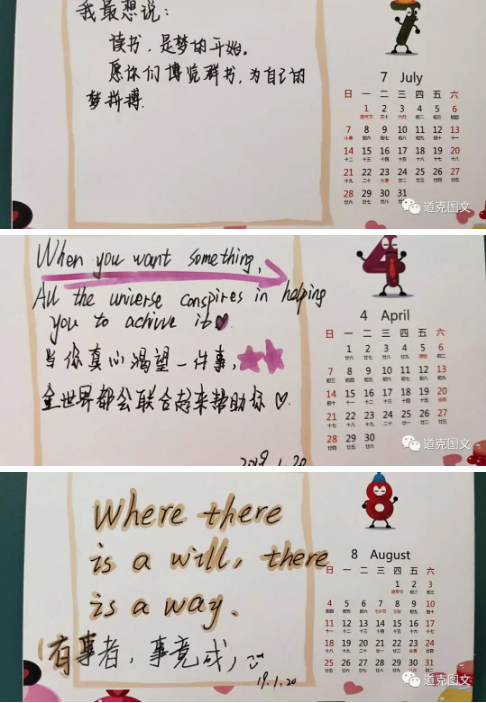 我最想说：
读书，是梦的开始。
愿你们博览群书，为自己的
梦拼搏.
7 July
日 一 二 三 四 五 六
1 2 3 4 5 6
7 8 9 10 11 12 13
14 15 16 17 18 19 20
21 22 23 24 25 26 27
28 29 30 31
道克图文
When you want something,
All the universe conspires in helping
you to achieve it
当你真心渴望一件事，
全世界都会联合起来帮助你
2019.1.20
4 April
日 一 二 三 四 五 六
1 2 3 4 5 6
7 8 9 10 11 12 13
14 15 16 17 18 19 20
21 22 23 24 25 26 27
28 29 30
道克图文
Where there
is a will, there
is a way.
有事者，事竟成，
19.1.20
8 August
日 一 二 三 四 五 六
1 2 3
4 5 6 7 8 9 10
11 12 13 14 15 16 17
18 19 20 21 22 23 24
25 26 27 28 29 30 31
道克图文